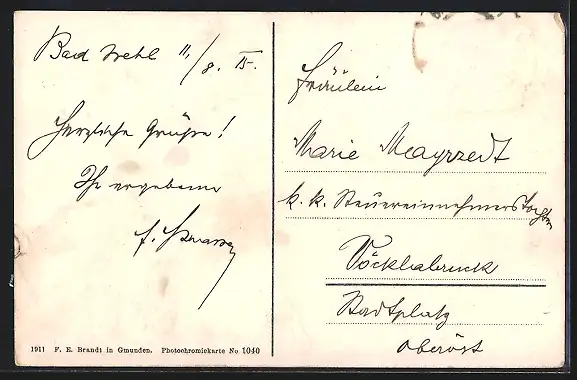 Bad Ischl 11/8. 15.
Herzliche Grüsse!
Ihr ergebener
Fräulein
Marie Mayrzedt
k. k. Steuereinnehmerstochter
Vöcklabruck
Stadtplatz
Oberöst
1911 F. E. Brandt in Gmunden. Photochromiekarte No 1040